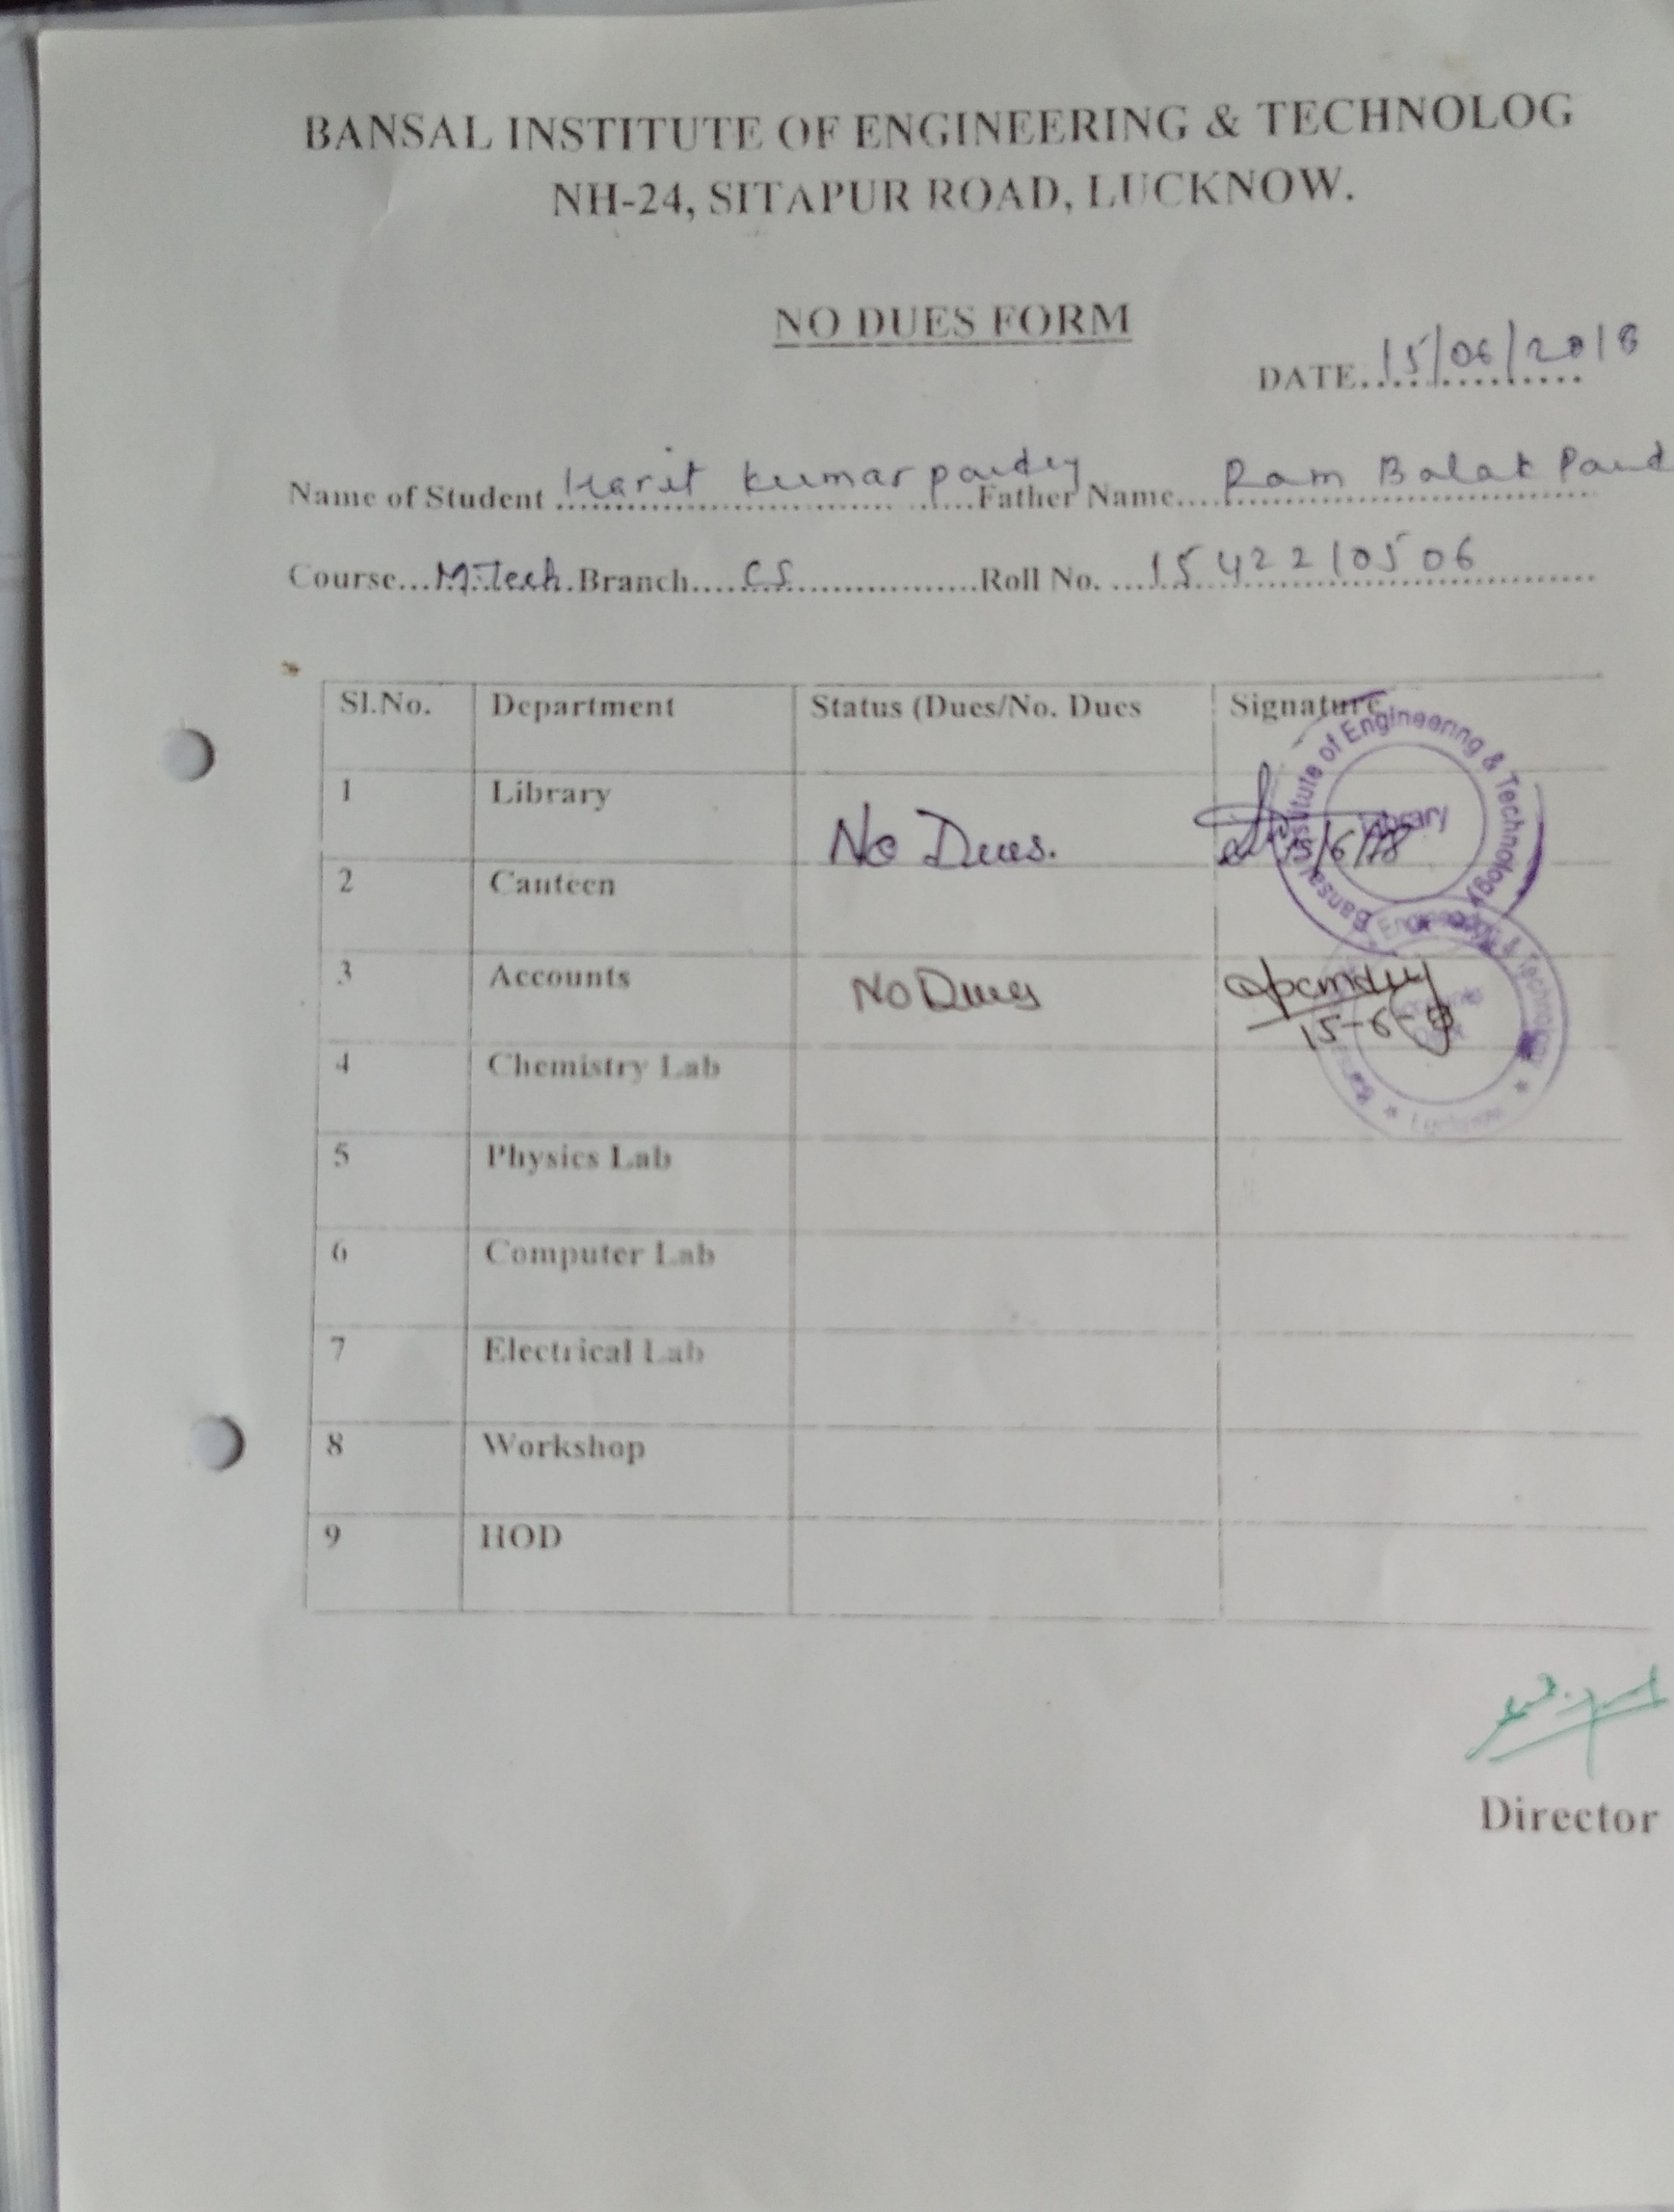 BANSAL INSTITUTE OF ENGINEERING & TECHNOLOG
NH-24, SITAPUR ROAD, LUCKNOW.
NO DUES FORM
DATE 15/06/2018
Name of Student Harit kumar pandey Father Name Ram Balak Pand
Course M.Tech Branch CS Roll No. 1542210506
Sl.No. Department Status (Dues/No. Dues Signature
1 Library No Dues. 15/6/18
Bansal Institute of Engineering & Technology
Library
2 Canteen
3 Accounts No Dues 15-6-
Engineering & Technology
4 Chemistry Lab
5 Physics Lab
6 Computer Lab
7 Electrical Lab
8 Workshop
9 HOD
Director